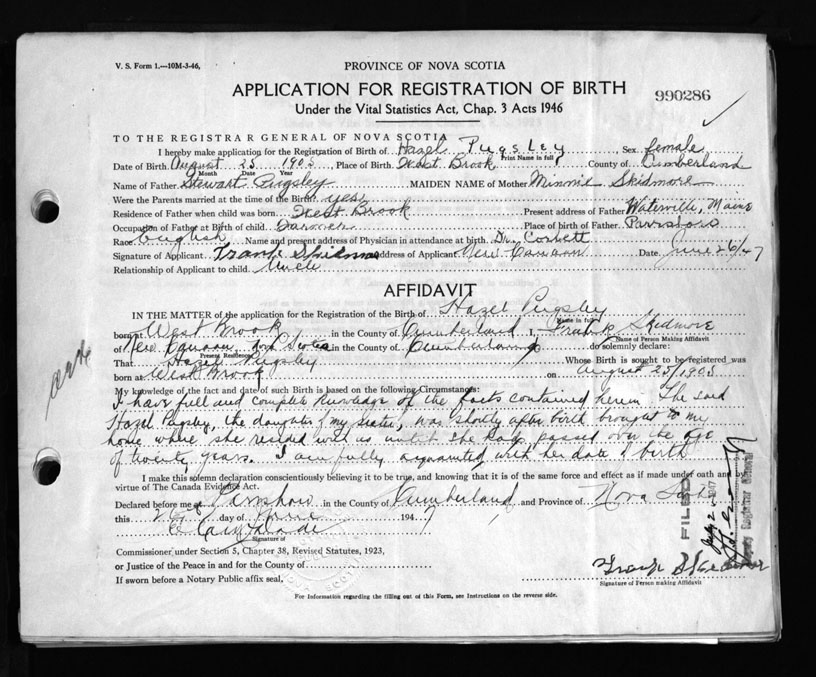 V. S. Form 1.—10M-3-46,
PROVINCE OF NOVA SCOTIA
APPLICATION FOR REGISTRATION OF BIRTH
990286
Under the Vital Statistics Act, Chap. 3 Acts 1946
TO THE REGISTRAR GENERAL OF NOVA SCOTIA
I hereby make application for the Registration of Birth of Hazel Pugsley Sex female
Print Name in full
Date of Birth August 25 1903, Place of Birth West Brook County of Cumberland
Month Date Year
Name of Father Stewart Pugsley MAIDEN NAME of Mother Minnie Skidmore
Were the Parents married at the time of the Birth yes
Residence of Father when child was born West Brook Present address of Father Waterville, Maine
Occupation of Father at Birth of child Farmer Place of birth of Father Parrsboro
Race English Name and present address of Physician in attendance at birth Dr. Corbett
Signature of Applicant Frank Skidmore address of Applicant New Canaan Date June 26/47
Relationship of Applicant to child Uncle
AFFIDAVIT
IN THE MATTER of the application for the Registration of the Birth of Hazel Pugsley
Name in full
born at West Brook in the County of Cumberland I, Frank Skidmore
Name of Person Making Affidavit
of New Canaan Nova Scotia in the County of Cumberland do solemnly declare:
Present Residence
That Hazel Pugsley Whose Birth is sought to be registered was
born at West Brook on August 25/1903
My knowledge of the fact and date of such Birth is based on the following Circumstances:
I have full and complete knowledge of the facts contained herein. The said
Hazel Pugsley, the daughter of my sister, was shortly after birth brought to my
home where she resided with us until she had passed over the age
of twenty years. I am fully acquainted with her date of birth
I make this solemn declaration conscientiously believing it to be true, and knowing that it is of the same force and effect as if made under oath and
virtue of The Canada Evidence Act.
Declared before me at in the County of Cumberland and Province of Nova Scotia
this 26 day of June 1947
Signature of
Commissioner under Section 5, Chapter 38, Revised Statutes, 1923,
or Justice of the Peace in and for the County of
If sworn before a Notary Public affix seal,
Frank Skidmore
Signature of Person making Affidavit
FILED
For Information regarding the filling out of this Form, see Instructions on the reverse side.